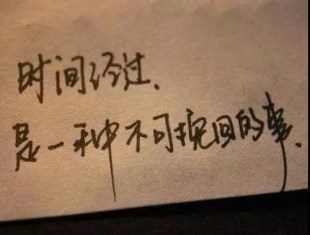 时间经过、
是一种不可挽回的事.